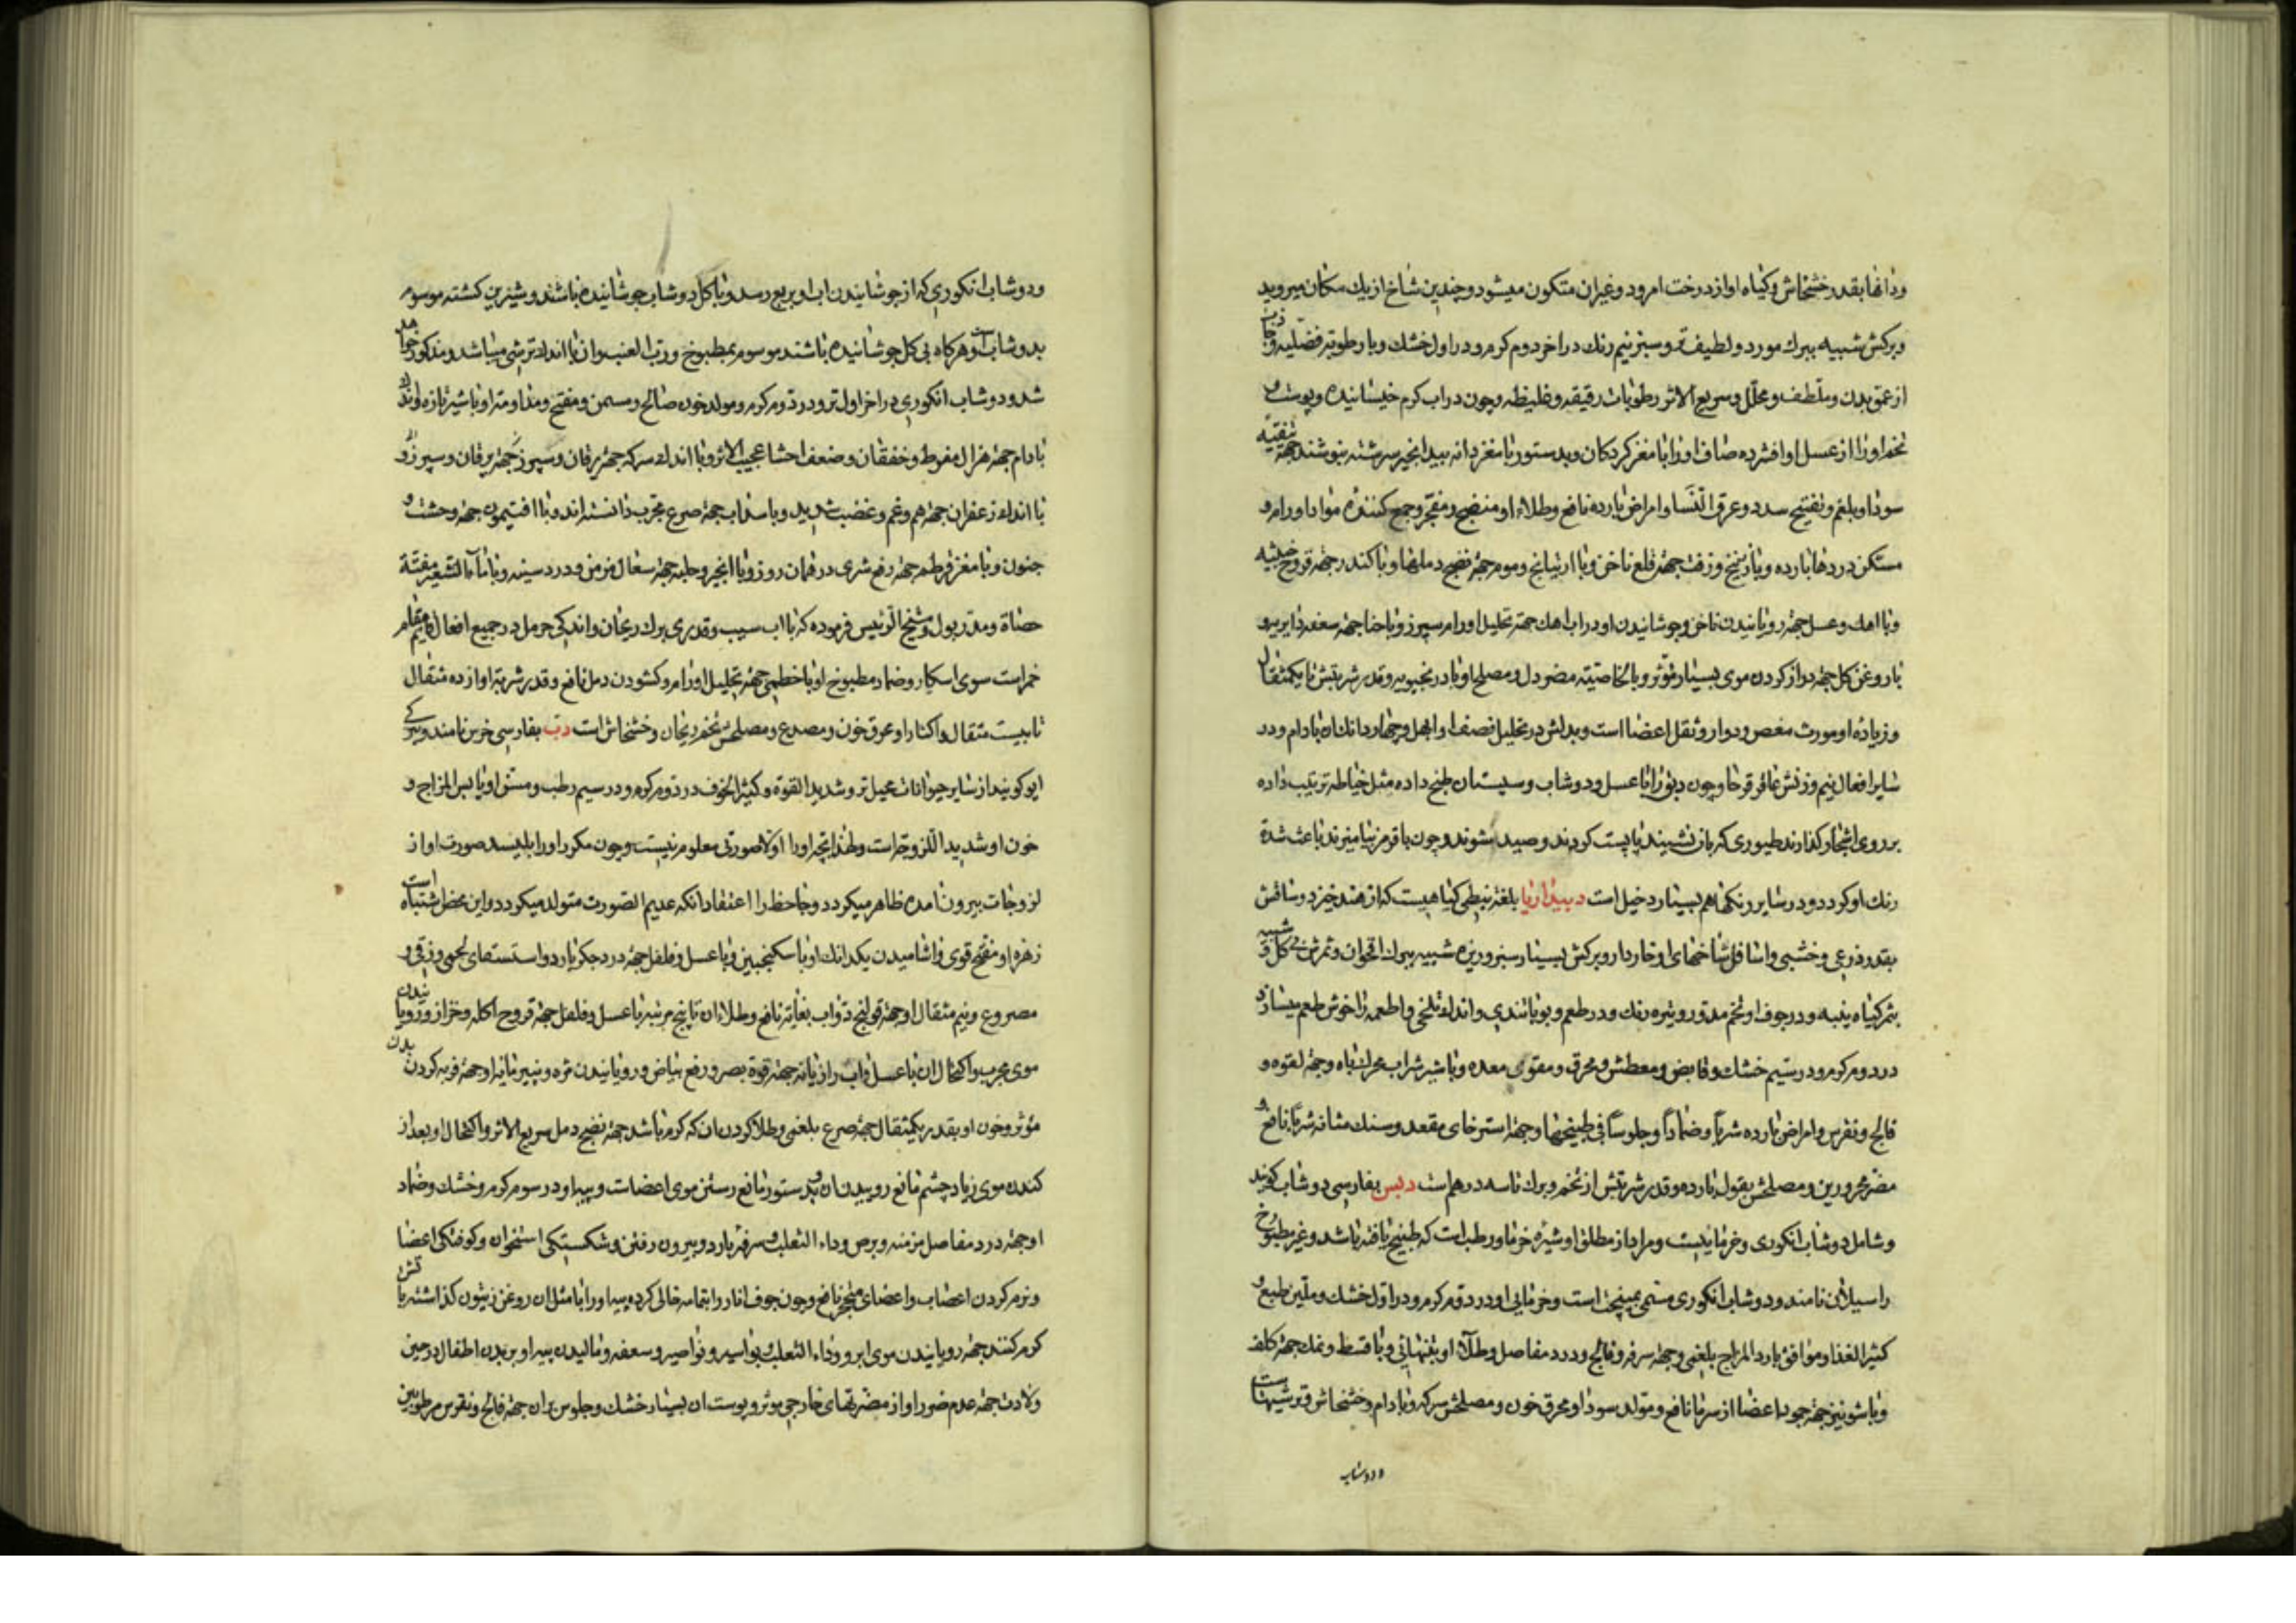 ودانها بقدر خشخاش وکیاه او از درخت امرود وغیر ان متکون میشود وچندین شاخ از یك مکان میروید
وبرکش شبیه ببرك مورد ولطیف تر وسبز نیم رنك در اخر دوم کرم ودر اول خشك وبا رطوبة فضلیه وجاذب
از عمق بدن وملطف ومحلل وسریع الاثر رطوبات رقیقه وغلیظه وچون در اب کرم خیسانیده وپوست و
تخم اورا از عسل او افشرده صاف اورا با مغز کردکان وبدستور با مغز دانه بیدانجیر سرشته بنوشند جهة تنقیه
سودا وبلغم وتفتیح سدد وعرق النسا وامراض بارده نافع وطلاء او منضج ومفجر وجمع کننده مواد اورام و
مسکن دردها بارده وبا زرنیخ وزفت جهة قلع ناخن وبا راتیانج وموم جهة نضج دملها وبا کندر جهة قروح خبیثه
وبا اهك وعسل جهة رویانیدن ناخن وجوشانیدن او در اب اهك جهة تحلیل اورام سپرز وبا حنا جهة سعفه
با روغن کل جهة دراز کردن موی بسیار مؤثر وبالخاصیته مضر دل ومصلح او بادرنجبویه وقدر شربتش تا یکمثقال
وزیاده او مورث مغص ودوار وثقل اعضا است وبدلش در تحلیل نصف او ابهل وچهار دانك ان بادام ودر
سایر افعال نیم وزنش عاقرقرحا وچون دبق را با عسل ودوشاب وسپستان طبخ داده مثل خیاطه ترتیب داده
بر روی اشجار کذارند طیوری که بر ان نشینند پابست کردند وصید شوند وچون با قرمز بیامیزند باعث شدة
رنك او کردد ودر سایر رنکها هم بسیار دخیل است دبیداریا بلغة نبطی کیاهیست که از هند خیزد وساقش
بقدر ذرعی وخشبی واسافل شاخهای او خاردار وبرکش بسیار سبز وریزه شبیه ببرك اقحوان وثمرش بی کل وشبیه
بثمر کیاه پنبه ودر جوف او تخم مدور وتیره رنك ودر طعم وبو با تندی واندك تلخی واطعمه را خوش طعم میسازد
در دوم کرم ودر سیم خشك وقابض ومعطش ومحرق ومقوی معده وبا شیر شراب محرك باه وجهة لقوه و
فالج ونقرس وامراض بارده شربا وضمادا وجلوسا فی طبیخها وجهة استرخای مقعد وسنك مثانه شربا نافع و
مضر محرورین ومصلحش بقول بارده وقدر شربتش از تخم وبرك تا سه درهم است دبس بفارسی دوشاب کویند
وشامل دوشاب انکوری وخرمائیست ومراد از مطلق او شیرۀ خرما ورطب است که طبخ یافته باشد وغیر مطبوخ
را سیلان نامند ودوشاب انکوری مسمی بمیپختج است وخرمایی او در دوم کرم ودر اول خشك وملین طبع و
کثیر الغذا وموافق بارد المزاج بلغمی وجهة سرفه وفالج ودرد مفاصل وطلاء او بتنهائی وبا قسط ونمك جهة کلف
وبا شونیز جهة جمود اعضا از سرما نافع ومولد سودا ومحرق خون ومصلحش سرکه وبادام وخشخاش وترشیهاست
ودوشاب
ودوشاب انکوری که از جوشانیدن اب او بربع رسد وبا کل دوشاب جوشانیده باشند وشیرین کشته موسوم
بدوشاب است وهرکاه بی کل جوشانیده باشند موسوم بمطبوخ ورب العنب وان با اندك ترشی میباشد ومذکور خواهد
شد ودوشاب انکوری در اخر اول تر ودر دوم کرم ومولد خون صالح ومسمن ومفتح ومداومة او با شیر تازه وروغن
بادام جهة هزال مفرط وخفقان وضعف احشا عجیب الاثر وبا اندك سرکه جهة یرقان وسپرز جهة یرقان وسپرز و
با اندك زعفران جهة هم وغم وغضب شدید وبا سداب جهة صرع مجرب دانسته اند وبا افتیمون جهة وحشت و
جنون وبا مغز قرطم جهة رفع شری در همان روز وبا انجیر وحلبه جهة سعال مزمن ودرد سینه وبا ماء الشعیر مفتة
حصاة ومدر بول وشیخ الرئیس فرموده که با اب سیب وقدری برك ریحان واندکی حرمل در جمیع افعال قایم مقام
خمر است سوی اسکار وضماد مطبوخ او با خطمی جهة تحلیل اورام وکشودن دمل نافع وقدر شربة او از ده مثقال
تا بیست مثقال واکثار او محرق خون ومصدع ومصلحش تخم ریحان وخشخاش است دب بفارسی خرس نامند وبترکی
ایو کویند از سایر حیوانات محیل تر وشدید القوة وکثیر الخوف در دوم کرم ودر سیم رطب ومسن او یابس المزاج و
خون او شدید اللزوجة است ولهذا بچه اورا اولا صورتی معلوم نیست وچون مکرر اورا بلیسد صورت او از
لزوجات بیرون امده ظاهر میکردد وجاحظ را اعتقاد انکه عدیم الصورت متولد میکردد واین محض اشتباه است
زهره او مفتح قوی واشامیدن یکدانك او با سکنجبین وبا عسل وفلفل جهة درد جکر بارد واستسقای لحمی وزقی و
مصروع ونیم مثقال او جهة قولنج دواب بغایة نافع وطلاء ان تا پنج مرتبه با عسل وفلفل جهة قروح اکله وخزاز ورویانیدن
موی مجرب واکتحال ان با عسل واب رازیانه جهة قوة بصر ورفع بیاض ورویانیدن مژه وپنیر مایه او جهة فربه کردن بدن
مؤثر وخون او بقدر یکمثقال جهة صرع بلغمی وطلا کردن ان که کرم باشد جهة نضج دمل سریع الاثر واکتحال او بعد از
کندن موی زیاد چشم مانع روییدن ان وبدستور مانع رستن موی اعضاست وپیه او در سوم کرم وخشك وضماد
او جهة درد مفاصل مزمنه وبرص وداء الثعلب وسرفه بارد وبیرون رفتن وشکستکی استخوان وکوفتکی اعضا
ونرم کردن اعصاب واعضای متحجر نافع وچون جوف انار را بتمامه خالی کرده پیه اورا با مثل ان روغن زیتون کذاشته با آتش
کرم کنند جهة رویانیدن موی ابرو وداء الثعلب وبواسیر ونواصیر وسعفه ومالیدن پیه او بر بدن اطفال در حین
ولادت جهة عدم ضرر او از مضرتهای خارجی مؤثر وپوست ان بسیار خشك وجلوس بر ان جهة فالج ونقرس مرطوبین